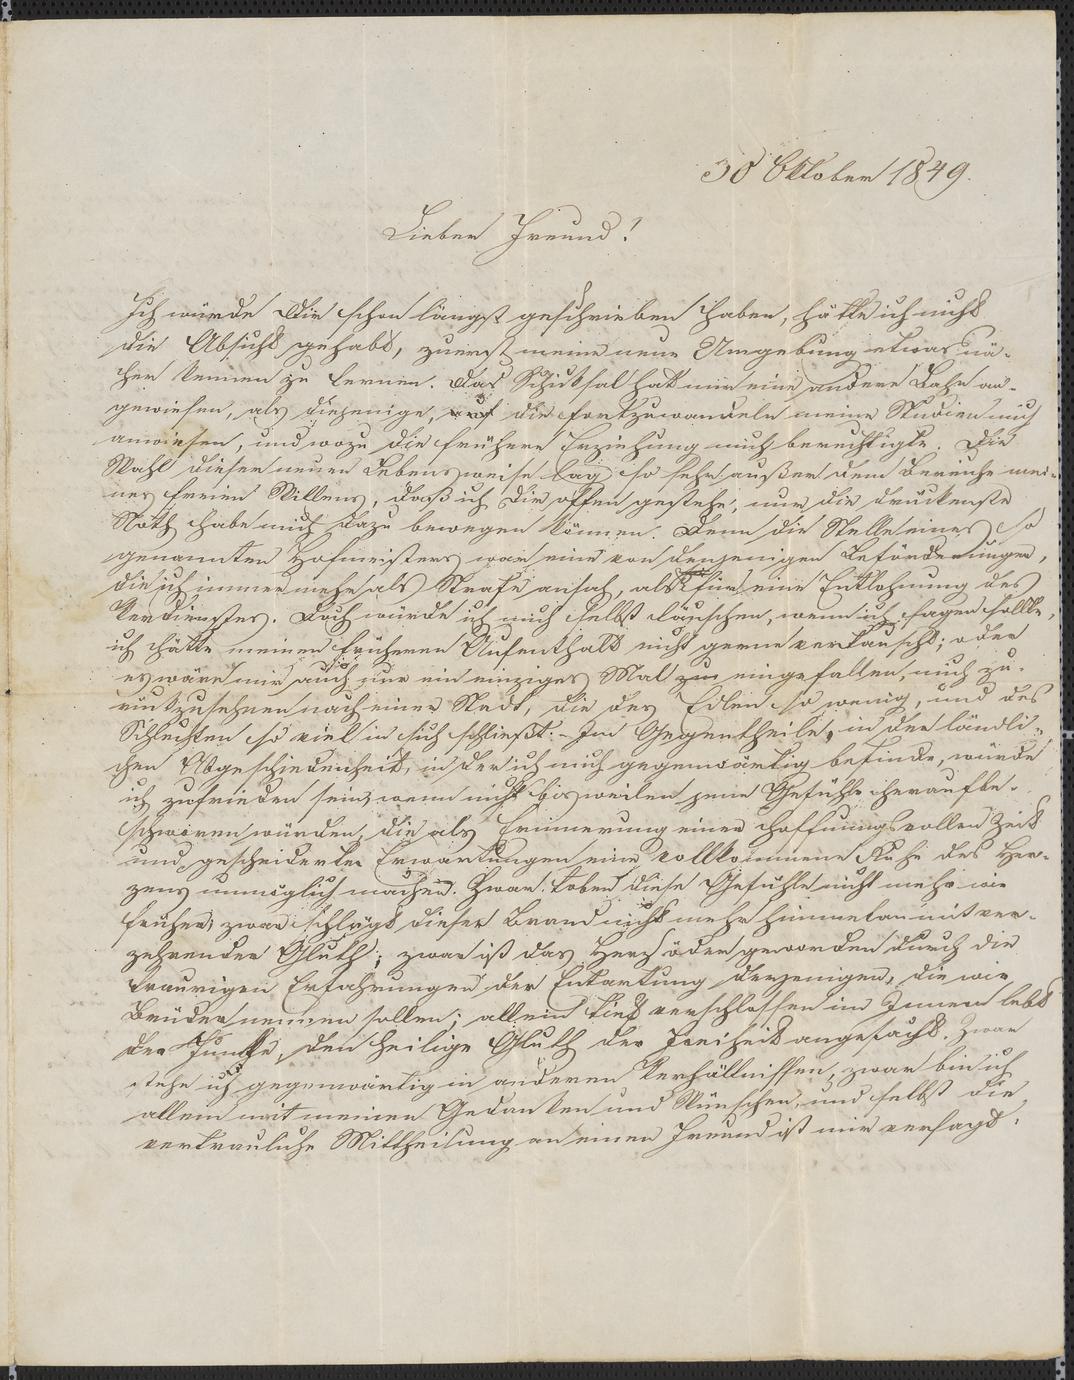 30 Oktober 1849.
Lieber Freund!
Ich würde Dir schon längst geschrieben haben, hätte ich nicht
die Absicht gehabt, zuerst meine neue Umgebung etwas nä-
her kennen zu lernen. Das Schiksal hat mir eine andere Bahn an-
gewiesen, als diejenige, auf die fortzuwandeln meine Studien mich
anwiesen, und wozu die frühere Erziehung mich berechtigte. Die
Wahl dieser neuen Lebensweise lag so sehr außer dem Bereiche mei-
nes freien Willens, daß ich Dir offen gestehe, nur die drückenste
Noth habe mich dazu bewegen können. Denn die Stelle eines so
genannten Hofmeisters war eine von denjenigen Beförderungen,
die ich immer mehr als Strafe ansah, als für eine Entlohnung des
Verdienstes. Doch würde ich mich selbst täuschen, wenn ich sagen sollte,
ich hätte meinen früheren Aufenthalt nicht gerne vertauscht; oder
es wäre mir auch nur ein einziges Mal eingefallen, mich zu-
rückzusehnen nach einer Stadt, die des Edlen so wenig, und des
Schlechten so viel in sich schließt. - Im Gegentheile, in der ländli-
chen Abgeschiedenheit, in der ich mich gegenwärtig befinde, würde
ich zufrieden sein, wenn nicht bisweilen jene Gefühle heraufbe-
schworen würden, die als Erinnerung einer hoffnungsvollen Zeit
und gescheiderter Erwartungen eine vollkommene Ruhe des Her-
zens unmöglich machen. Zwar toben diese Gefühle nicht mehr wie
früher, zwar schlägt dieser Brand nicht mehr himmelan mit ver-
zehrender Gluth; zwar ist das Herz öder geworden durch die
traurigen Erfahrungen der Entartung derjenigen, die wir
Brüder nennen sollen; allein tief verschlossen im Innern lebt
der Funke, den heilige Gluth der Freiheit angefacht. Zwar
stehe ich gegenwärtig in anderen Verhältnissen, zwar bin ich
allein mit meinen Gedanken und Wünschen, und selbst die
vertrauliche Mittheilung an einen Freund ist mir versagt;